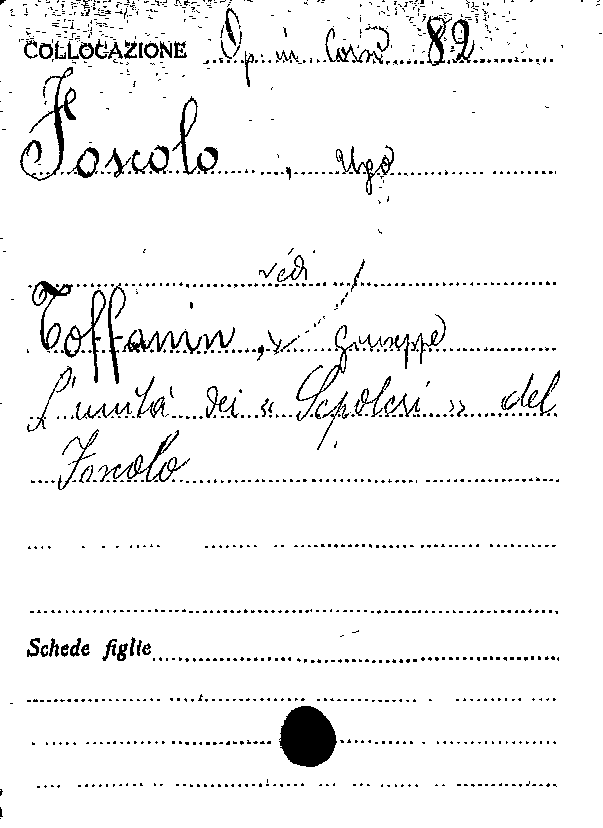 COLLOCAZIONE Op. in Corso 82
Foscolo, Ugo
vedi
Toffanin, Giuseppe
L'unità dei « Sepolcri » del
Foscolo
Schede figlie